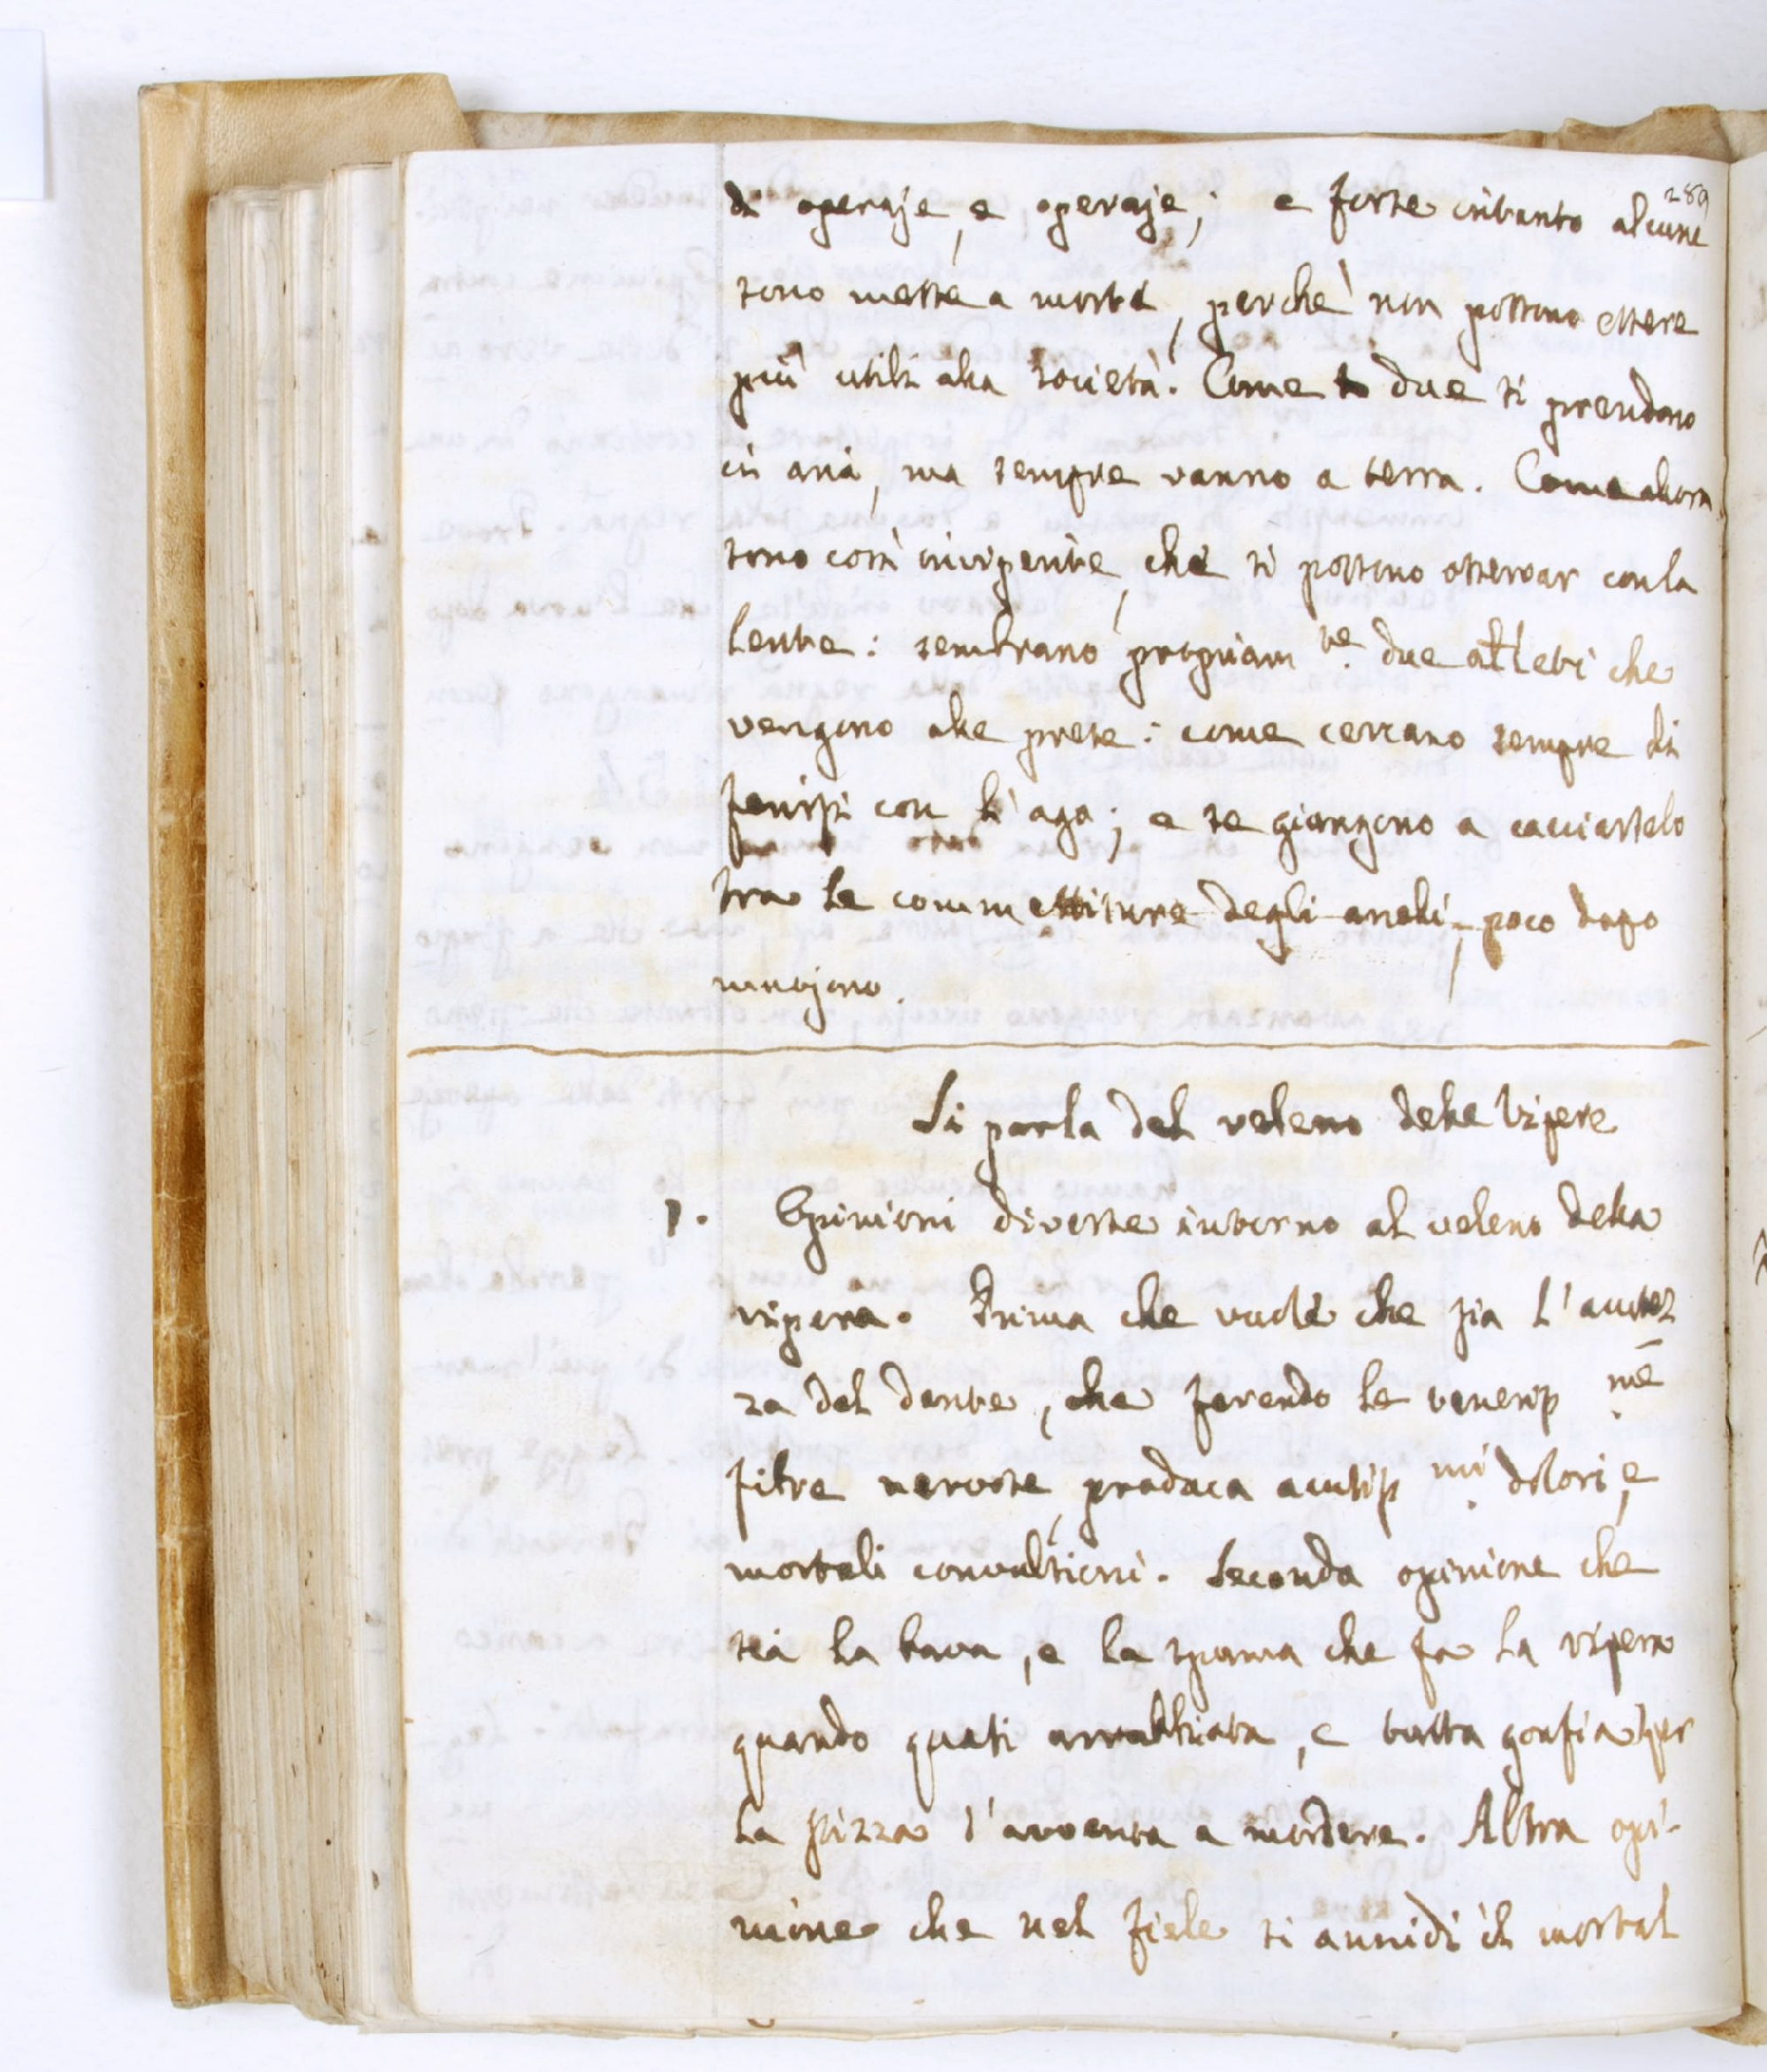 289
di operaje, e operaje; e forse intanto alcune
sono messe a morte, perchè non possono essere
più utili alla società. Come due si prendono
in aria, ma sempre vanno a terra. Come allora
sono così invipente, che si possono osservar con la
lente: sembrano propriam.te due atleti che
vengono alle prese: come cercano sempre di
ferirsi con l'ago; e se giungono a cacciarselo
tra le commettiture degli aneli, poco dopo
muojono.
Si parla del veleno delle Vipere
1. Opinioni diverse intorno al veleno della
vipera. Prima che vuole che sia l'acutez
za del dente, che ferendo le tenerisp.me
fibre nervose, produca acutisp.mi dolori, e
mortali convulsioni. Seconda opinione che
sia la bava, e la spuma che fa la vipera
quando quasi arrabbiata, e tutta gonfia per
la stizza s'avventa a mordere. Altra opi-
nione che nel fiele si annidi il mortal